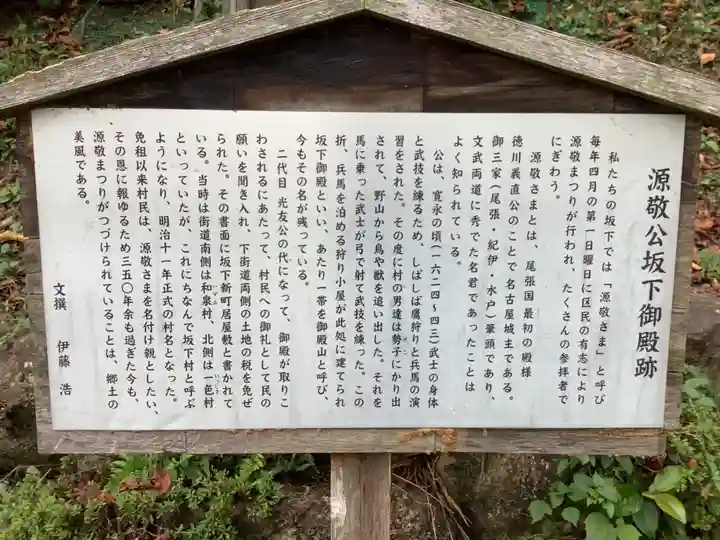 源敬公坂下御殿跡
私たちの坂下では「源敬さま」と呼び
毎年四月の第一日曜日に区民の有志により
源敬まつりが行われ、たくさんの参拝者で
にぎわう。
源敬さまとは、尾張国最初の殿様
徳川義直公のことで名古屋城主である。
御三家(尾張・紀伊・水戸)筆頭であり、
文武両道に秀でた名君であったことは
よく知られている。
公は、寛永の頃(一六二四〜四三)武士の身体
と武技を練るため、しばしば鷹狩りと兵馬の演
習をされた。その度に村の男達は勢子にかり出
されて、野山から鳥や獣を追い出した。それを
馬に乗った武士が弓で射て武技を練った。この
折、兵馬を泊める狩り小屋が此処に建てられ
坂下御殿といい、あたり一帯を御殿山と呼び、
今もその名が残っている。
二代目 光友公の代になって、御殿が取りこ
わされるにあたって、村民への御礼として民の
願いを聞き入れ、下街道両側の土地の税を免ぜ
られた。その書面に坂下新町居屋敷と書かれて
いる。当時は街道南側は和泉村、北側は一色村
といっていたが、これにちなんで坂下村と呼ぶ
ようになり、明治十一年正式の村名となった。
免租以来村民は、源敬さまを名付け親としたい、
その恩に報ゆるため三五〇年余も過ぎた今も、
源敬まつりがつづけられていることは、郷土の
美風である。
文撰 伊藤 浩